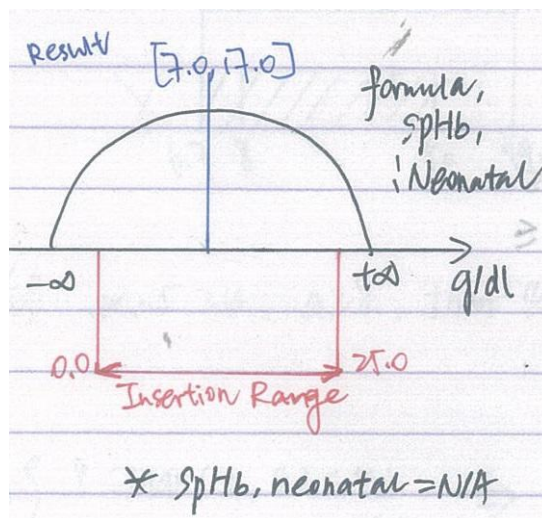 Result
[7.0, 17.0]
formula,
SpHb,
Neonatal
-∞
+∞
g/dl
0.0
25.0
Insertion Range
* SpHb, neonatal = N/A